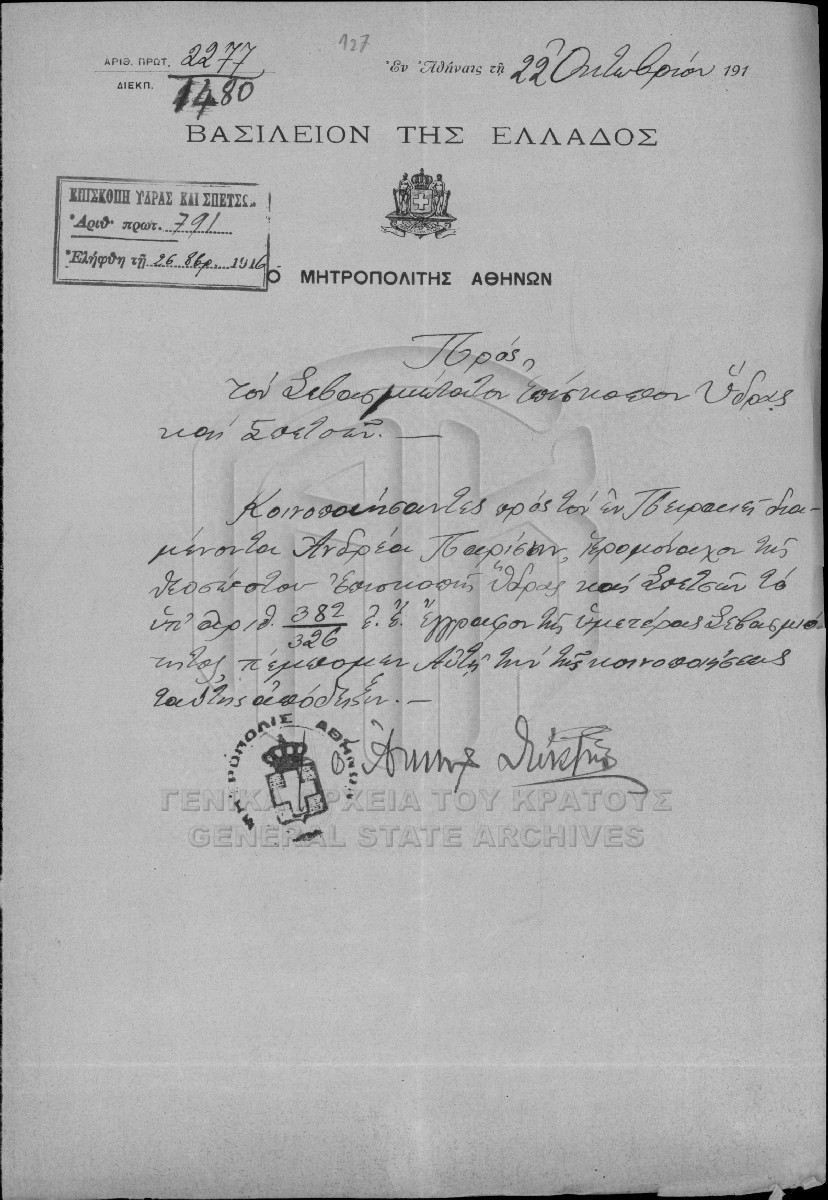 127
ΑΡΙΘ. ΠΡΩΤ. 2277
ΔΙΕΚΠ. 1480
Ἐν Ἀθήναις τῇ 22ᾳ Ὀκτωβρίου 191
ΒΑΣΙΛΕΙΟΝ ΤΗΣ ΕΛΛΑΔΟΣ
ΕΠΙΣΚΟΠΗ ΥΔΡΑΣ ΚΑΙ ΣΠΕΤΣΩΝ
Ἀριθ. πρωτ. 791
Ἐλήφθη τῇ 26 8βρ. 1916
Ο ΜΗΤΡΟΠΟΛΙΤΗΣ ΑΘΗΝΩΝ
Πρὸς
τὸν Σεβασμιώτατον Ἐπίσκοπον Ὕδρας
καὶ Σπετσῶν. —
Κοινοποιήσαντες πρὸς τὸν ἐν Πειραιεῖ δια-
μένοντα Ἀνδρέα Παρίση, ἱερομόναχον τῆς
θεοσώστου Ἐπισκοπῆς Ὕδρας καὶ Σπετσῶν τὸ
ὑπ' ἀριθ. 382/326 ἐ. ἔ. ἔγγραφον τῆς ὑμετέρας Σεβασμιό-
τητος, πέμπομεν Αὐτῇ τὴν τῆς κοινοποιήσεως
ταύτης ἀπόδειξιν. —
ὁ Ἀθηνῶν Θεόκλητος
ΜΗΤΡΟΠΟΛΙΣ ΑΘΗΝΩΝ
ΓΕΝΙΚΑ ΑΡΧΕΙΑ ΤΟΥ ΚΡΑΤΟΥΣ
GENERAL STATE ARCHIVES